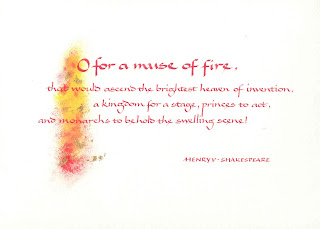 O for a muse of fire.
that would ascend the brightest heaven of invention.
a kingdom for a stage, princes to act,
and monarchs to behold the swelling scene!
HENRY V - SHAKESPEARE